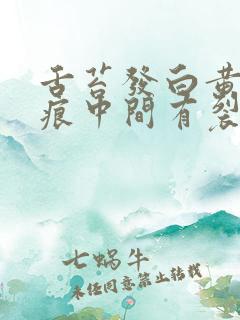 舌苔發白黃
痕中間有裂
七蝸牛
未经同意禁止转载